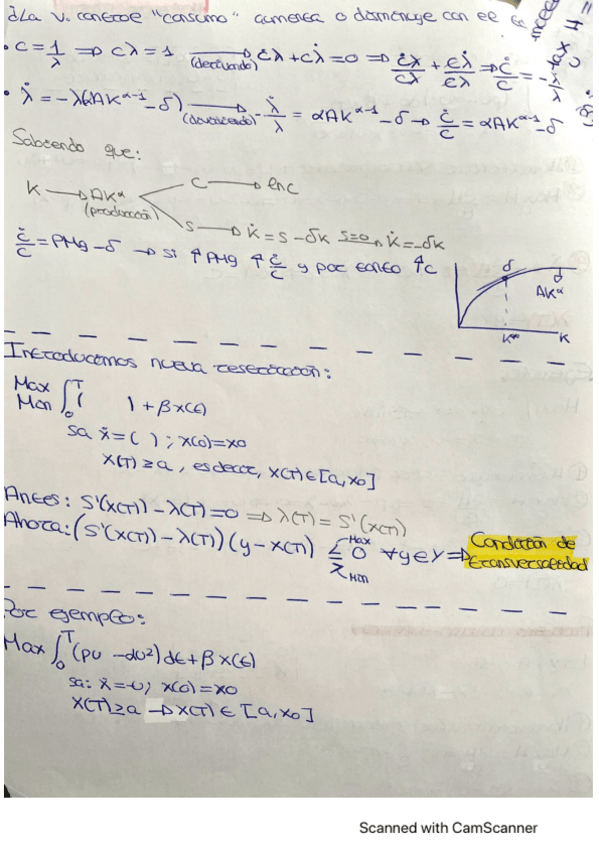 ¿La v. control "consumo" aumenta o disminuye con el
• C = 1/λ ⇒ Cλ = 1 →(derivando) Ċλ + Cλ̇ = 0 ⇒ Ċλ/Cλ + Cλ̇/Cλ ⇒ Ċ/C = -λ̇/λ
• λ̇ = -λ(αAK^α-1 - δ) → -λ̇/λ = αAK^α-1 - δ → Ċ/C = αAK^α-1 - δ
Sabiendo que:
K → AK^α (producción)
C → lnC
S → K̇ = S - δK S=0 → K̇ = -δK
Ċ/C = PMg - δ → si ↑PMg ↑Ċ/C y por tanto ↑C
δ
δ
AK^α
K
Introducimos nueva restricción:
Max
Min ∫₀ᵀ ( ) + βx(t)
sa ẋ = ( ); x(0) = x0
x(T) ≥ a, es decir, x(T) ∈ [a, x0]
Antes: S'(x(T)) - λ(T) = 0 ⇒ λ(T) = S'(x(T))
Ahora: (S'(x(T)) - λ(T)) (y - x(T)) ≤ Max 0 ≥ Min ∀y∈Y ⇒ Condición de
transversalidad
Por ejemplo:
Max ∫₀ᵀ (pu - du²)dt + βx(t)
sa: ẋ = -u; x(0) = x0
x(T) ≥ a → x(T) ∈ [a, x0]
Scanned with CamScanner